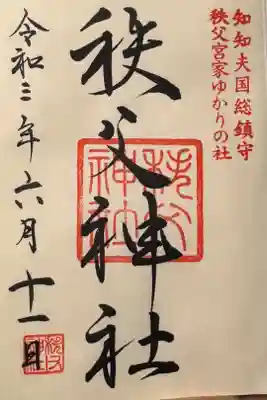 知知夫国総鎮守
秩父宮家ゆかりの社
秩父神社
秩父神社
令和三年六月十一日